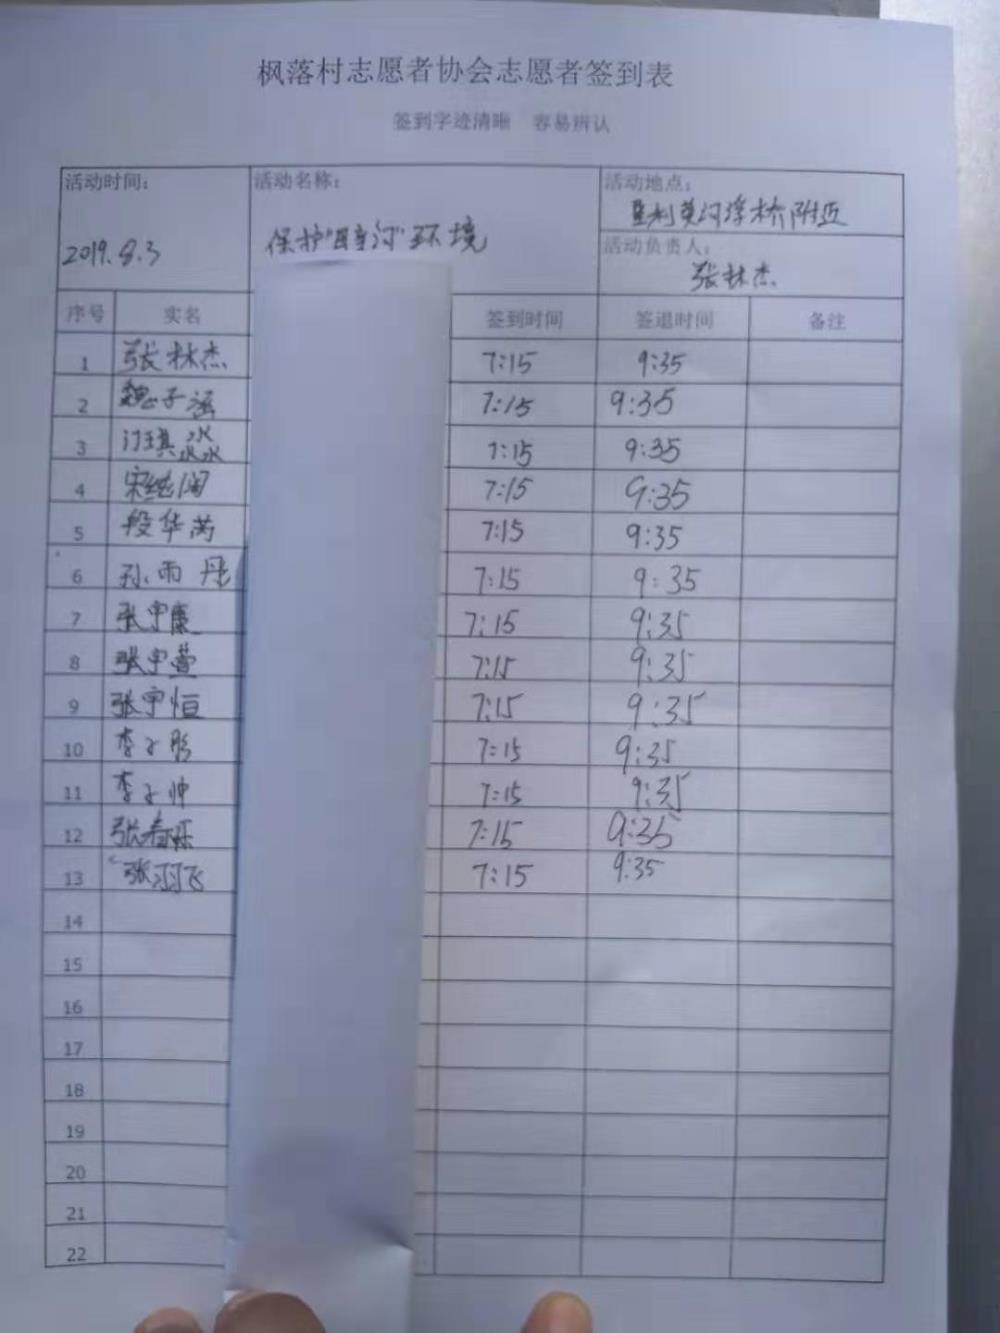 枫落村志愿者协会志愿者签到表
签到字迹清晰 容易辨认
活动时间: 活动名称: 活动地点:
垦利黄河浮桥附近
2019.8.3 保护"母亲河"环境 活动负责人:
张林杰
序号 实名 签到时间 签退时间 备注
1 张林杰 7:15 9:35
2 魏子涵 7:15 9:35
3 许琪淼 7:15 9:35
4 宋继闻 7:15 9:35
5 段华芮 7:15 9:35
6 孙雨彤 7:15 9:35
7 张宇康 7:15 9:35
8 张宇萱 7:15 9:35
9 张宇恒 7:15 9:35
10 李子彤 7:15 9:35
11 李子帅 7:15 9:35
12 张春 7:15 9:35
13 张羽飞 7:15 9:35
14
15
16
17
18
19
20
21
22